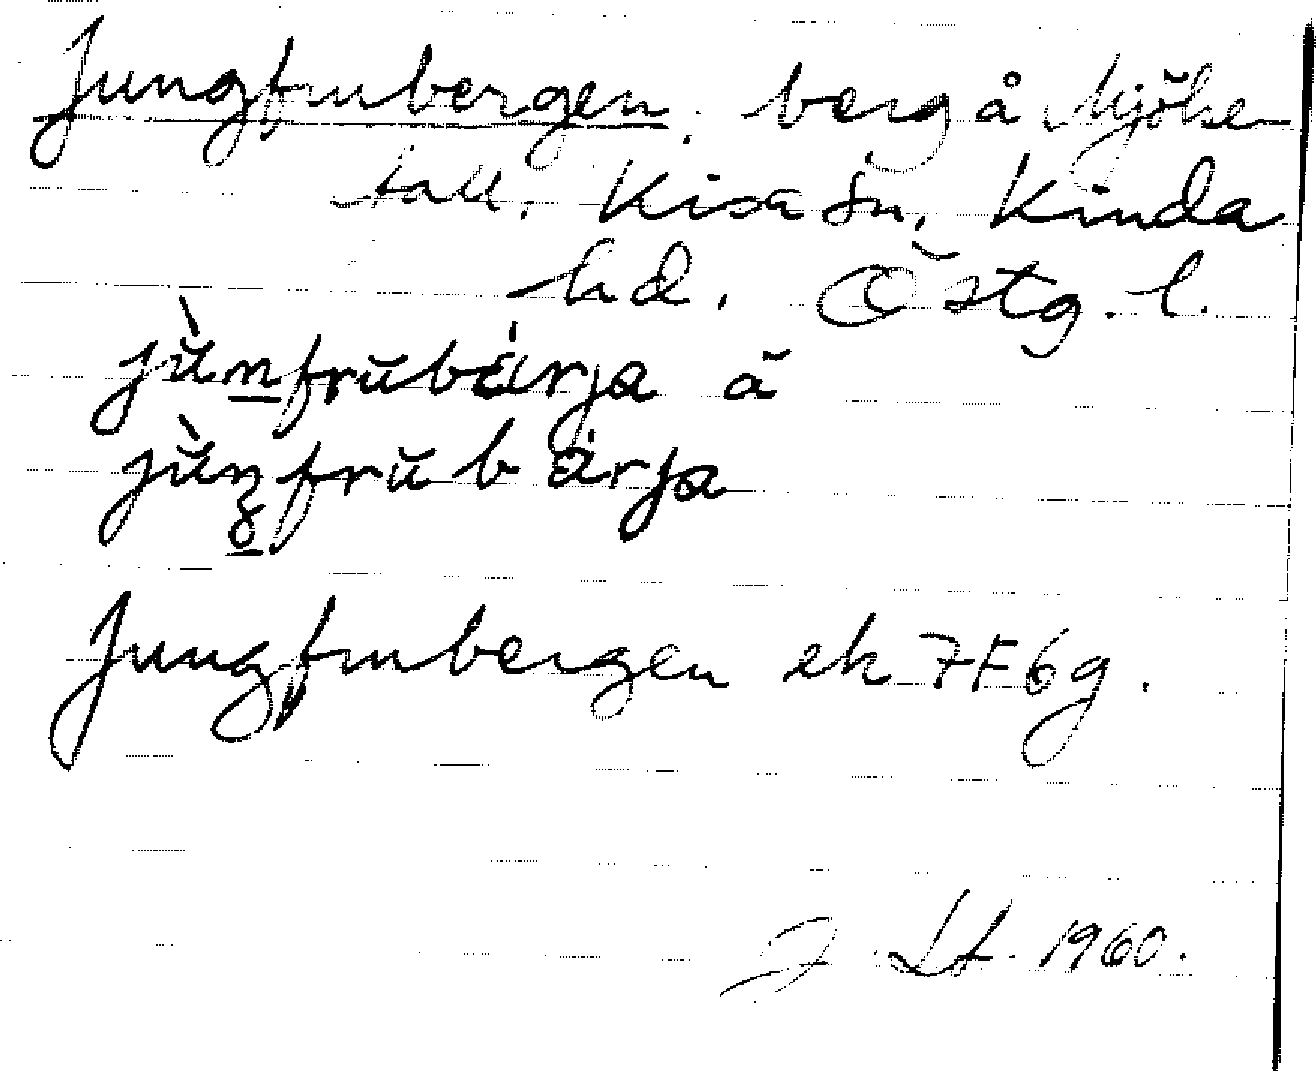 Jungfrubergen, berg å Mjölse-
tall, Kisa sn, Kinda
hd. Östg. l.
jùnfrŭbärja å
jùŋfrŭbärja
Jungfrubergen ek 7F6g.
J. Lt. 1960.